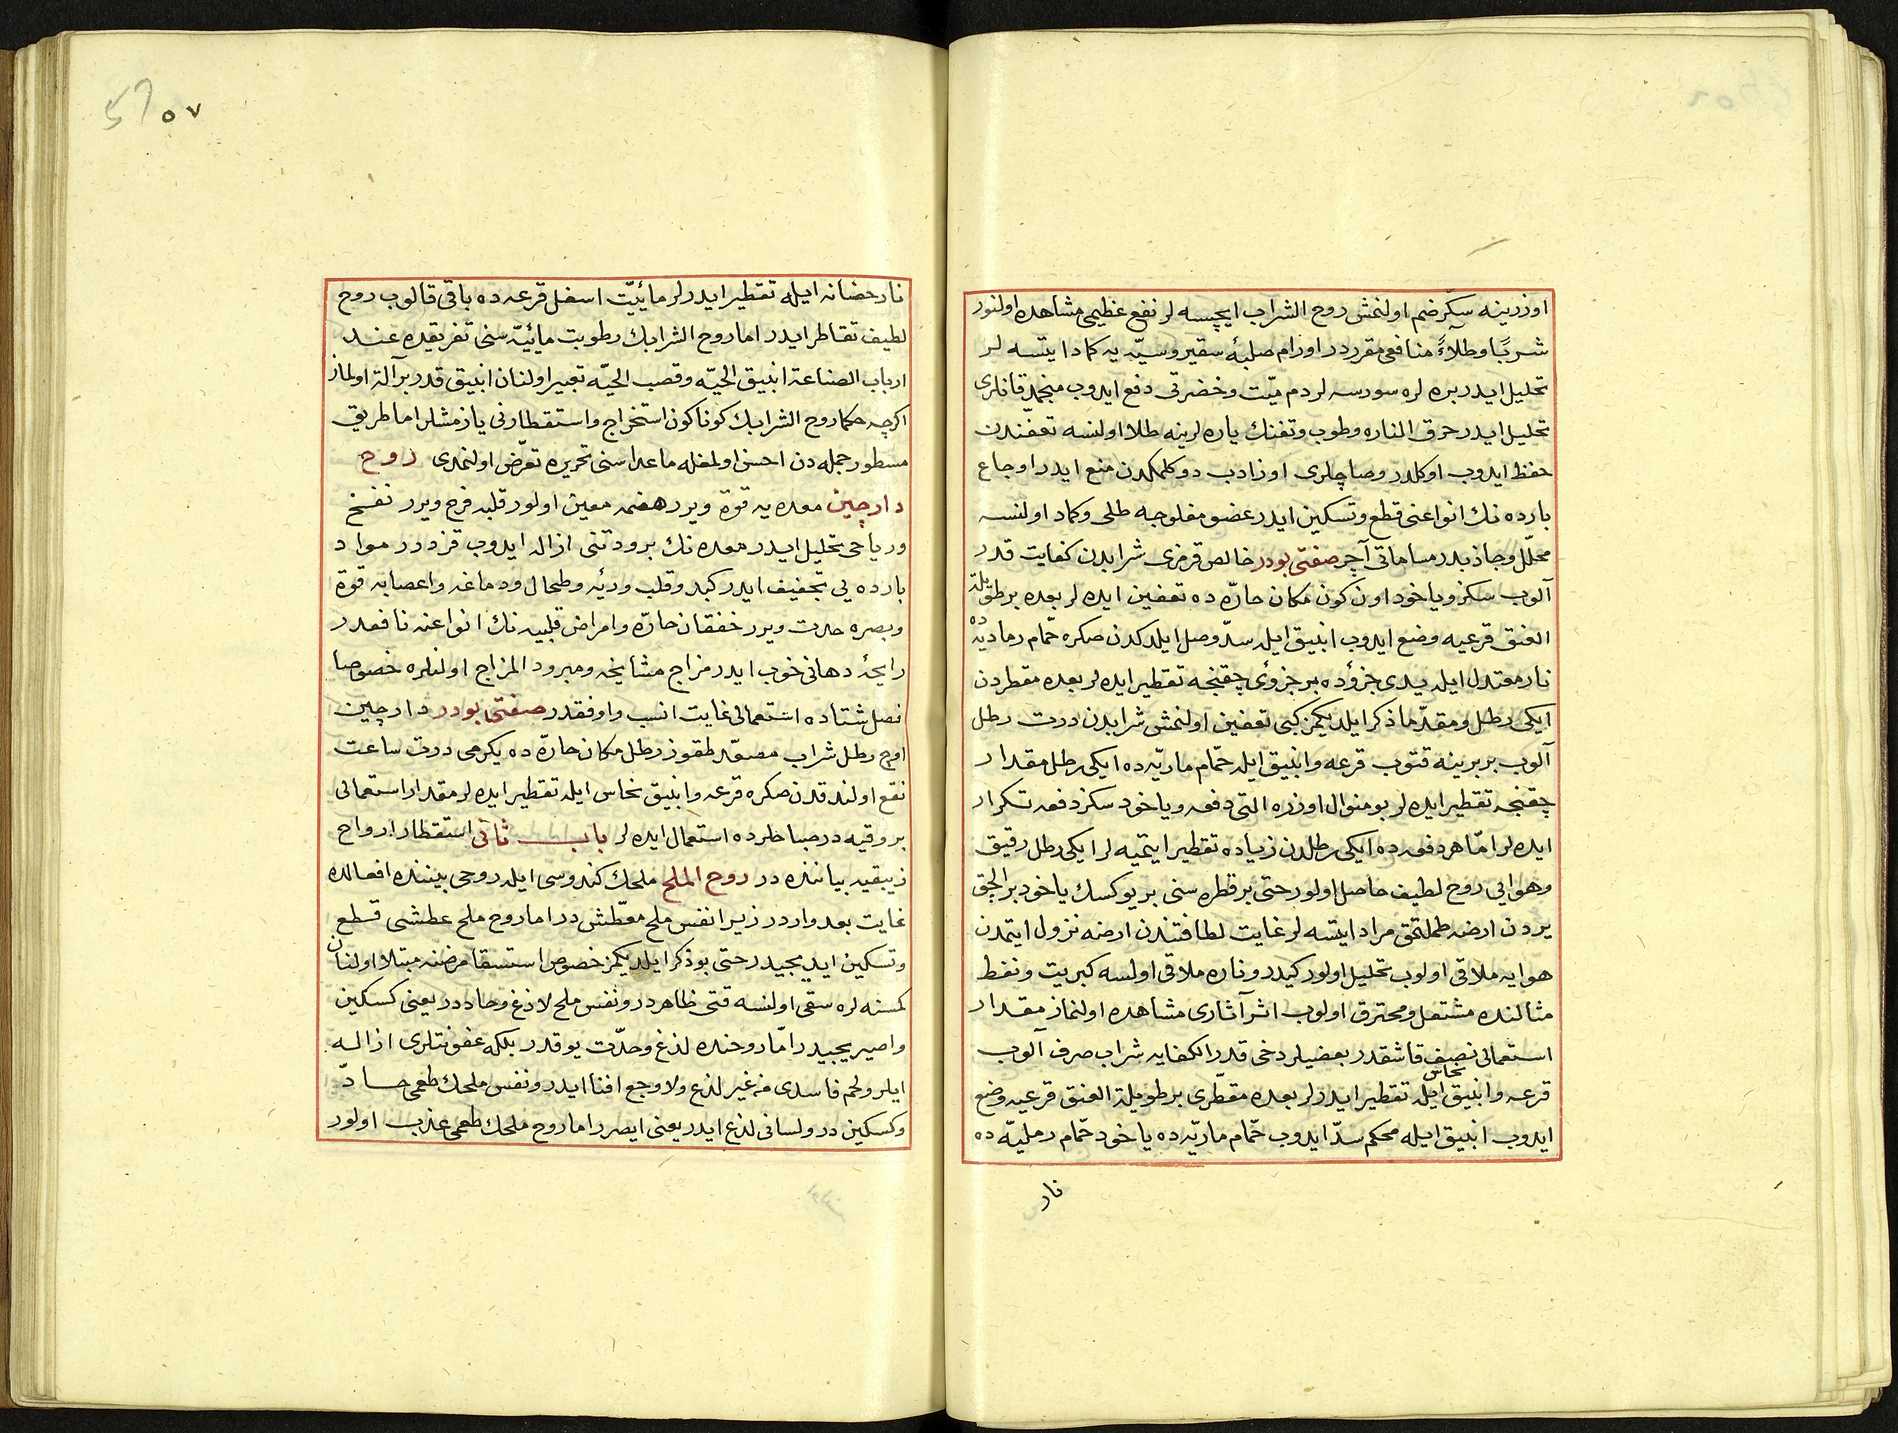 اوزرينه سكّر ضم اولنمش روح الشراب ايچسه لر نفع عظيمى مشاهده اولنور
شربًا وطلآءً منافعى مقرردر اورام صلبۀ سقيروسيّه يه كماد ايتسه لر
تحليل ايدر بره لره سورسه لر دم ميّت وخضرتى دفع ايدوب منجمد قانلرى
تحليل ايدر حرق الناره وطوب وتفنك ياره لرينه طلا اولنسه تعفّندن
حفظ ايدوب اوكلدر وصاچلرى اوزادب دوكلمكدن منع ايدر اوجاع
بارده نك انواعنى قطع وتسكين ايدر عضو مفلوجه طلى وكماد اولنسه
محلّل وجاذبدر مساماتى آچر صفتى بودر خالص قرمزى شرابدن كفايت قدر
آلوب سكز وياخود اون كون مكان حارّه ده تعفين ايده لر بعده بر طويلة
العنق قرعيه وضع ايدوب انبيق ايله سدّ وصل ايلدكدن صكره حمّام رماديّه ده
نار معتدل ايله يدى جزؤده بر جزؤى چقنجه تقطير ايده لر بعده مقطردن
ايكى رطل ومقدّما ذكر ايلديكمز كبى تعفين اولنمش شرابدن درت رطل
آلوب بربرينه قتوب قرعه وانبيق ايله حمّام ماريّه ده ايكى رطل مقدار
چقنجه تقطير ايده لر بو منوال اوزره التى دفعه وياخود سكز دفعه تكرار
ايده لر امّا هر دفعه ده ايكى رطلدن زياده تقطير ايتميه لر ايكى رطل رقيق
وهوايى روح لطيف حاصل اولور حتى بر قطره سنى بر يوكسك ياخود بر الچق
يردن ارضه طملتمق مراد ايتسه لر غايت لطافتندن ارضه نزول ايتمدن
هوايه ملاقى اولوب تحليل اولور كيدر وناره ملاقى اولسه كبريت ونفط
مثالنده مشتعل ومحترق اولوب اثر آثارى مشاهده اولنماز مقدار
استعمالى نصف قاشقدر بعضيلر دخى قدر الكفايه شراب صرف آلوب
قرعه وانبيق نحاس ايله تقطير ايدرلر بعده مقطّرى بر طويلة العنق قرعيه وضع
ايدوب انبيق ايله محكم سدّ ايدوب حمّام ماريّه ده ياخود حمّام رمليّه ده
نار
٥٧ 57
نار حضانه ايله تقطير ايدرلر مائيّت اسفل قرعه ده باقى قالوب روح
لطيف تقاطر ايدر اما روح الشرابك رطوبت مائيّه سنى تفريقده عند
ارباب الصناعة انبيق الحيّه وقصب الحيّه تعبير اولنان انبيق قدر بر آلة اولماز
اكرچه حكما روح الشرابك كوناكون استخراج واستقطارنى يازمشلر اما طريق
مسطور جمله دن احسن اولمغله ماعداسنى تحريره تعرّض اولنمدى روح
دارچين معده يه قوّة ويرر هضمه معين اولور قلبه فرح ويرر نفخ
ورياحى تحليل ايدر معده نك برودتنى ازاله ايدوب قزدرر مواد
بارده يى تجفيف ايدر كبد وقلب ورئه وطحال ودماغه واعصابه قوة
وبصره حدت ويرر خفقان حارّه وامراض قلبيه نك انواعنه نافعدر
رايحۀ دهانى خوب ايدر مزاج مشايخه ومبرود المزاج اولنلره خصوصا
فصل شتاده استعمالى غايت انسب واوفقدر صفتى بودر دارچين
اوچ رطل شراب مصعّد طقوز رطل مكان حارّه ده يكرمى درت ساعت
نقع اولندقدن صكره قرعه وانبيق نحاس ايله تقطير ايده لر مقدار استعمالى
بر وقيه در صباحلرده استعمال ايده لر باب ثانى استقطار ارواح
زيبقيه بياننده در روح الملح ملحك كندوسى ايله روحى بيننده افعالده
غايت بعد واردر زيرا نفس ملح معطّش در اما روح ملح عطشى قطع
وتسكين ايديجيدر حتى بو ذكر ايلديكمز خصوص استسقا مرضنه مبتلا اولنان
كمسنه لره سقى اولنسه قتى ظاهردر ونفس ملح لاذغ وحاددر يعنى كسكين
واصيريجيدر امّا روحنده لذغ وحدّت يوقدر بلكه عفونتلرى ازاله
ايلر ولحم فاسدى من غير لذغ ولا وجع افنا ايدر ونفس ملحك طعمى حادّ
وكسكين در ولسانى لذغ ايدر يعنى ايصرر اما روح ملحك طعمى عذب اولور